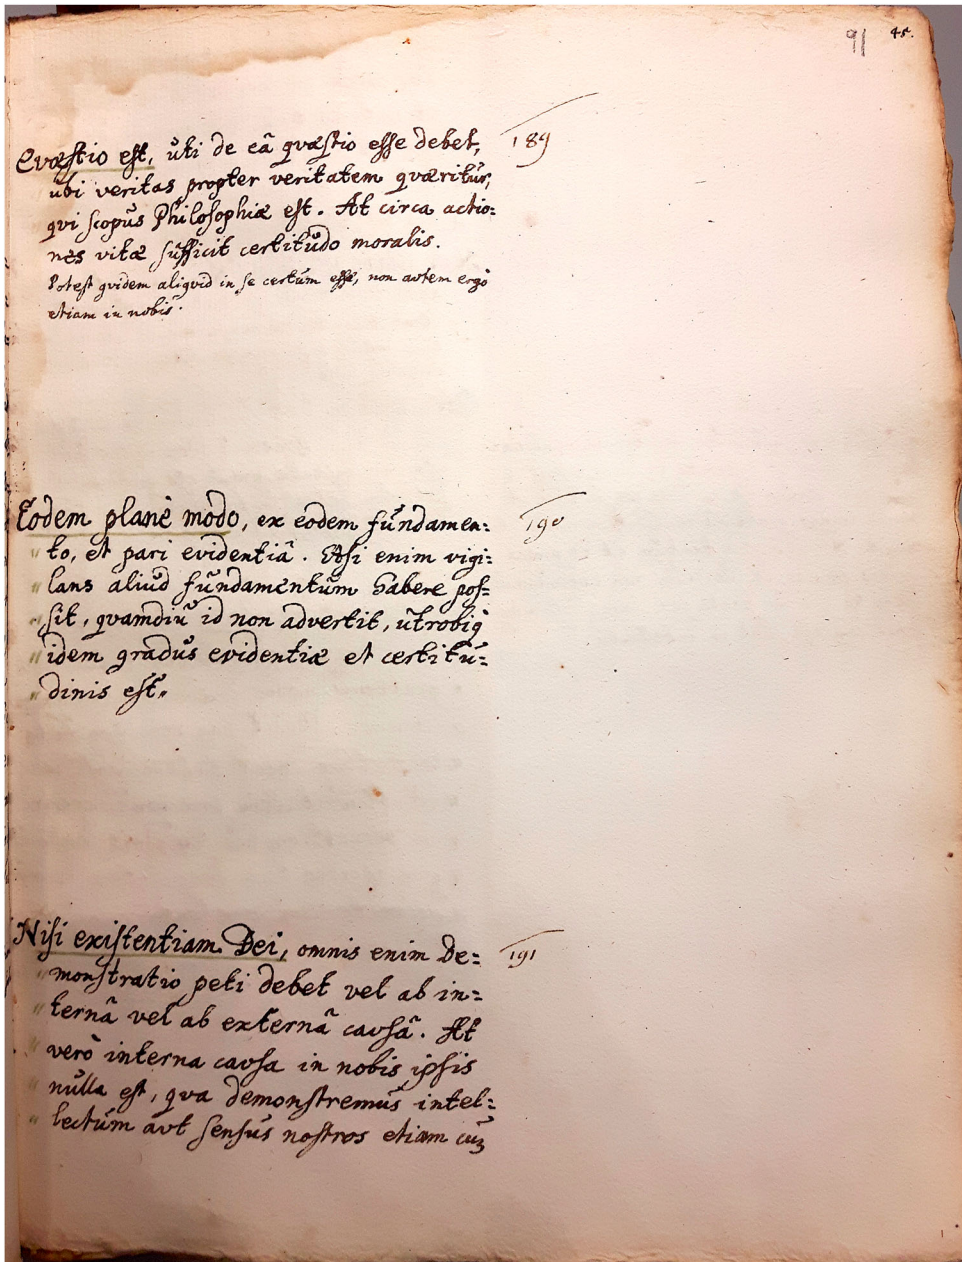 91 45.
Qvæstio est, ŭti de eâ qvæstio esse debet, 189
ŭbi veritas propter veritatem qværitŭr,
qvi scopŭs Philosophiæ est. At circa actio=
nes vitæ sŭfficit certitŭdo moralis.
Potest qvidem aliqvid in se certŭm esse, non avtem ergò
etiam in nobis.
Eodem planè modo, ex eodem fŭndamen= 190
" to, et pari evidentiâ. Etsi enim vigi=
" lans aliŭd fŭndamentŭm habere pos=
" sit, qvamdiŭ id non advertit, ŭtrobiq̀
" idem gradŭs evidentiæ et certitŭ=
" dinis est"
Nisi existentiam Dei, omnis enim De= 191
" monstratio peti debet vel ab in=
" ternâ vel ab externâ cavsâ. At
" verò interna cavsa in nobis ipsis
" nŭlla est, qva demonstremŭs intel=
" lectŭm avt sensŭs nostros etiam cŭꝫ